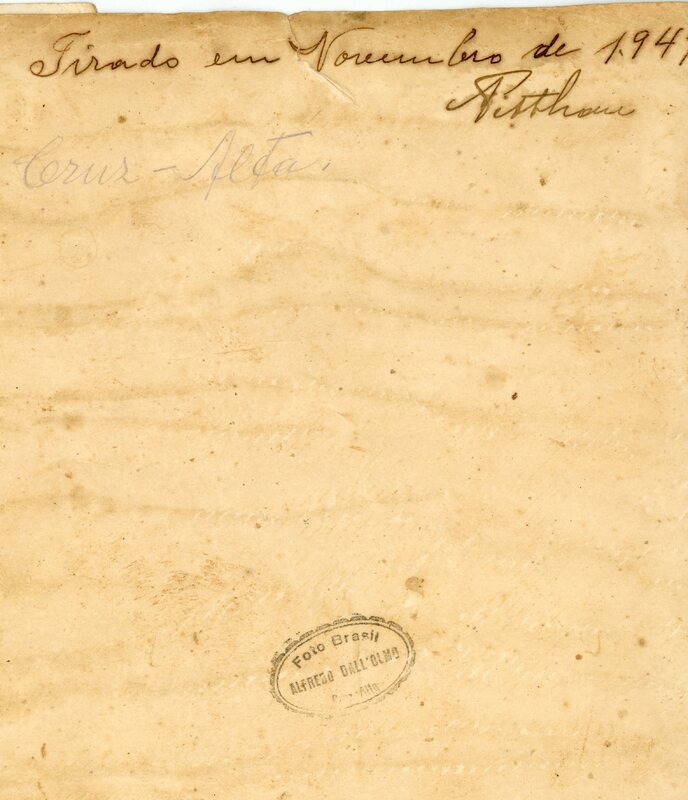 Tirado em Novembro de 1.947
Pitthan
Cruz-Alta.
Foto Brasil
ALFREDO DALL'OLMO
Cruz-Alta